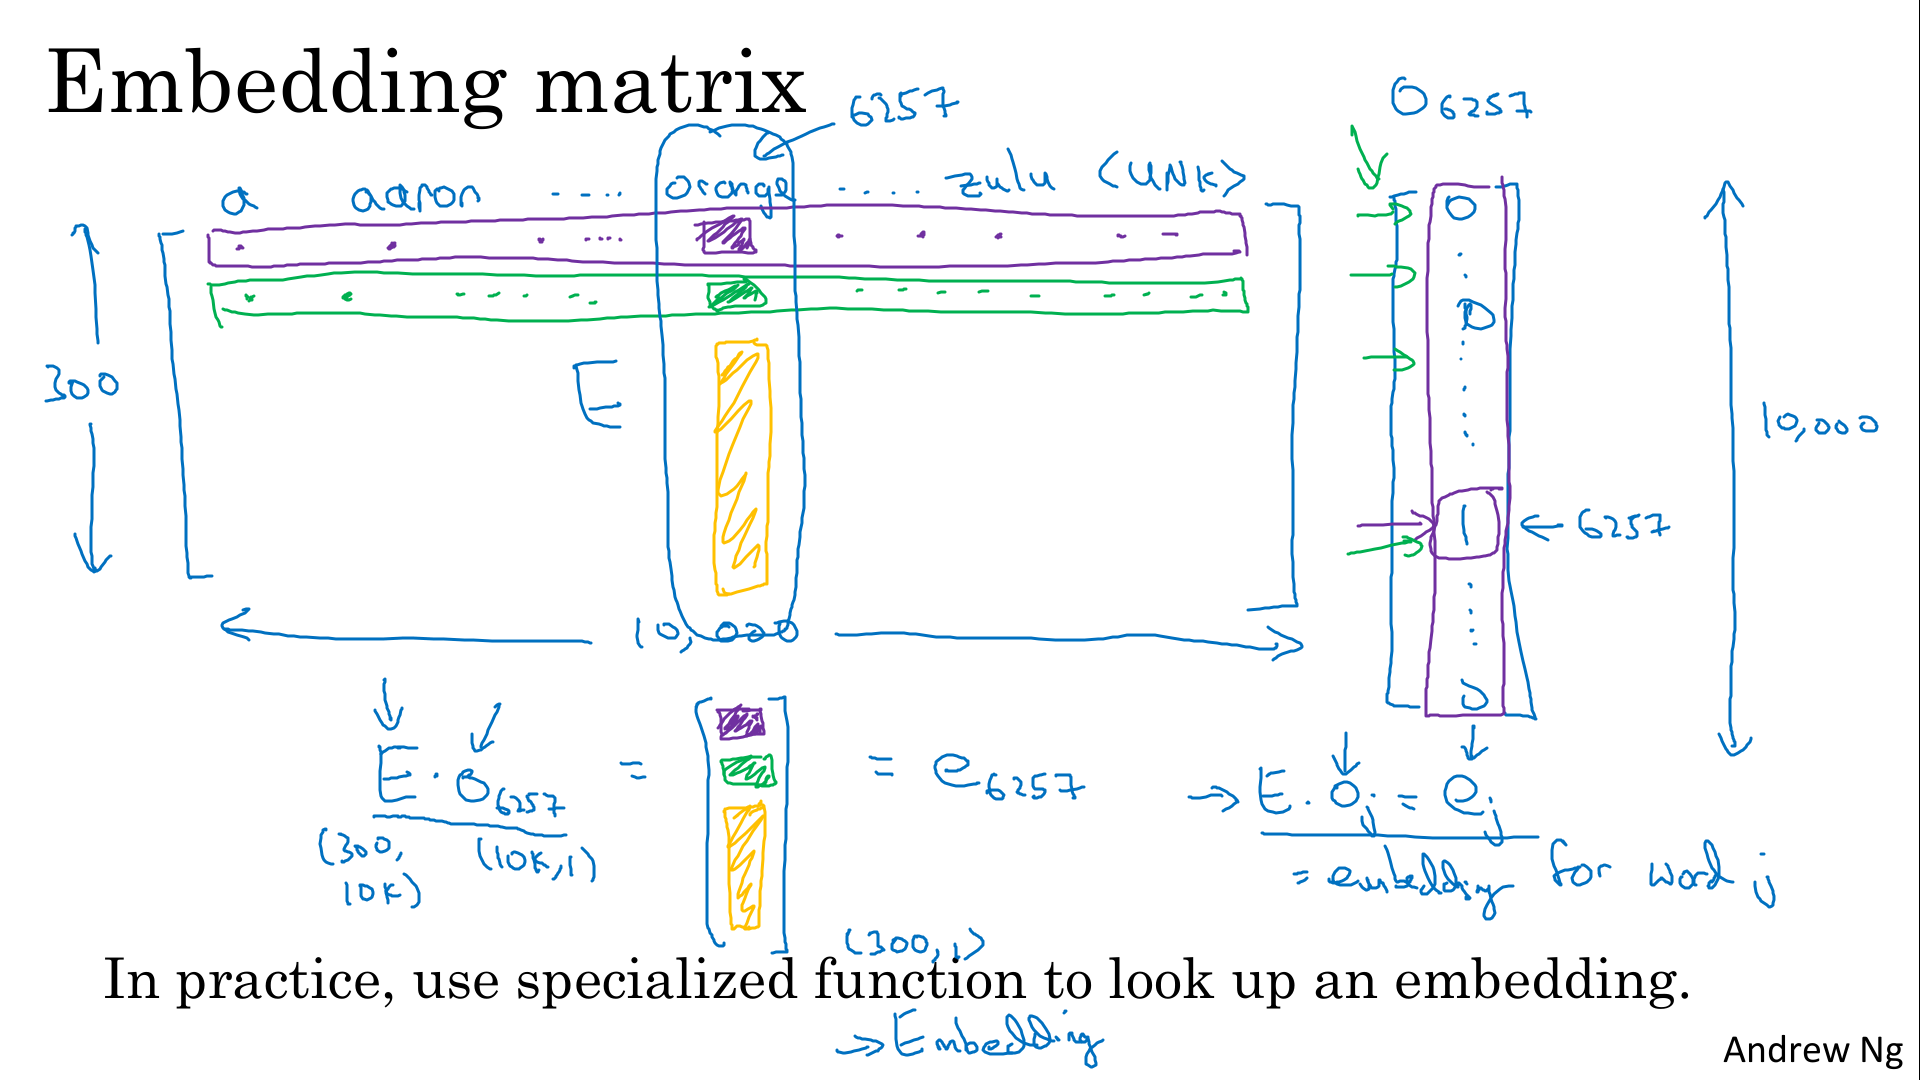 Embedding matrix
6257
O6257
a aaron .... orange .... zulu <UNK>
300
E
10,000
0
0
1 ← 6257
0
10,000
E · O6257 = = e6257
(300, 10K) (10K,1)
(300,1)
→ E · oj = ej
= embedding for word j
In practice, use specialized function to look up an embedding.
→ Embedding
Andrew Ng